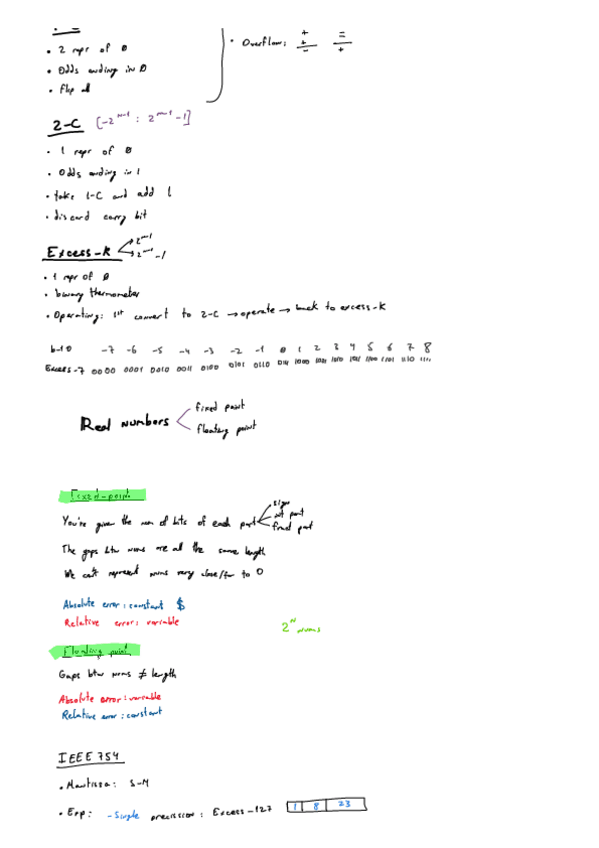 • 2 repr of 0
• Odds ending in 0
• Flip all
• Overflow: + + − − − +
2-C [-2^(n-1) : 2^(n-1) -1]
• 1 repr of 0
• Odds ending in 1
• take 1-C and add 1
• discard carry bit
Excess-K 2^(n-1)
2^(n-1) -1
• 1 repr of 0
• binary thermometer
• Operating: 1st convert to 2-C → operate → back to excess-K
b-10 -7 -6 -5 -4 -3 -2 -1 0 1 2 3 4 5 6 7 8
Excess-7 0000 0001 0010 0011 0100 0101 0110 0111 1000 1001 1010 1011 1100 1101 1110 1111
Real numbers
fixed point
floating point
Fixed-point
You're given the num of bits of each part
sign
int part
fract part
The gaps btw nums are all the same length
We can't represent nums very close/far to 0
Absolute error: constant $
Relative error: variable
2^N nums
Floating point
Gaps btw nums ≠ length
Absolute error: variable
Relative error: constant
IEEE 754
• Mantissa: S-M
• Exp: - Single precission: Excess-127 1 8 23